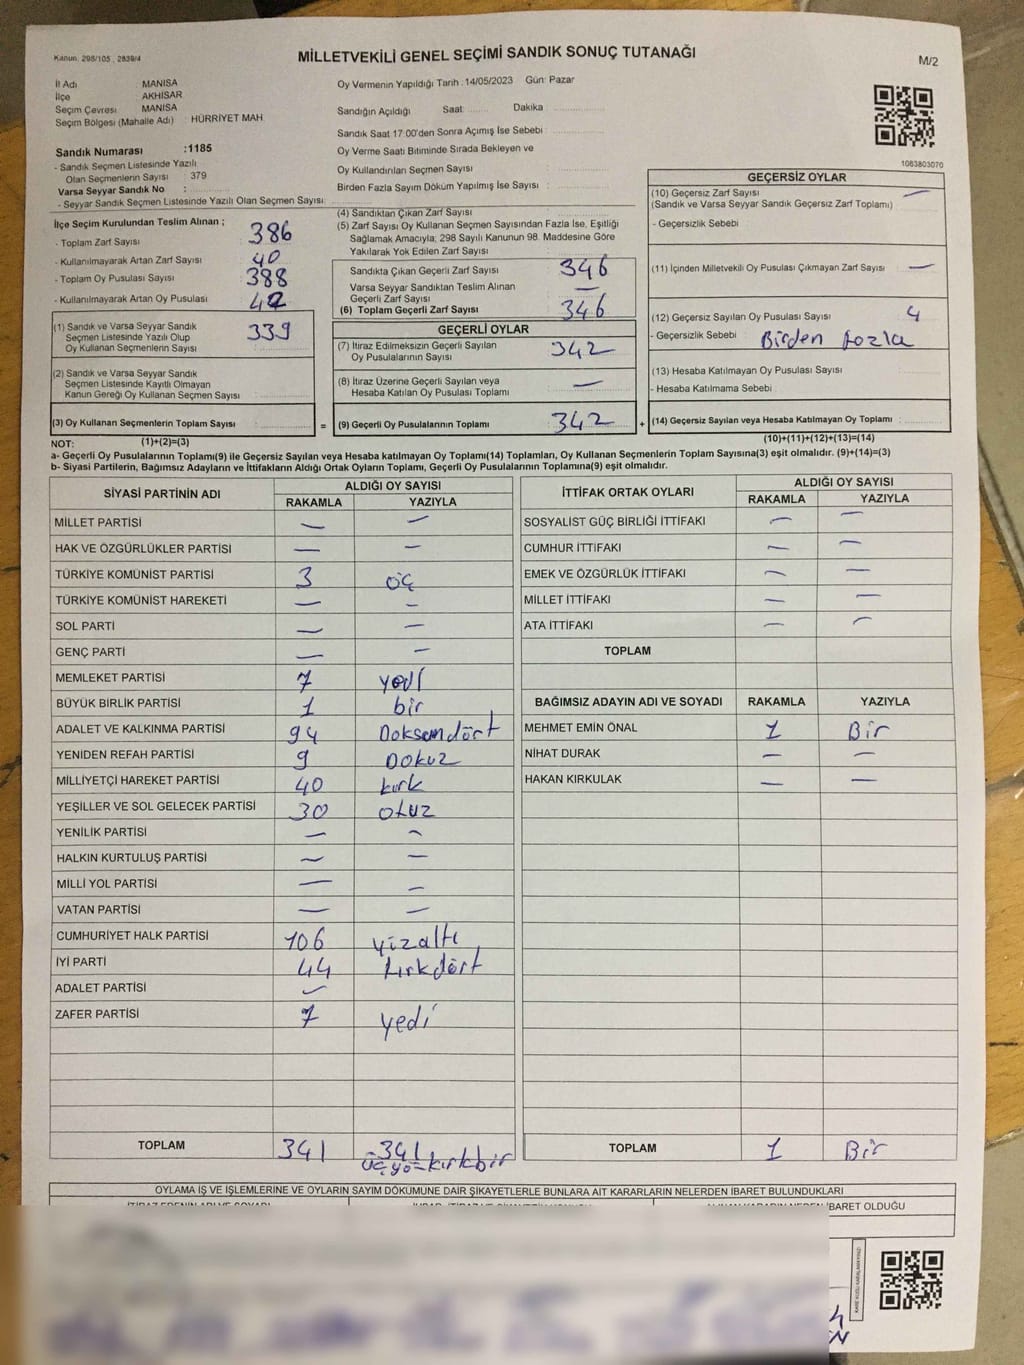 Kanun. 298/105 , 2839/4
MİLLETVEKİLİ GENEL SEÇİMİ SANDIK SONUÇ TUTANAĞI
M/2
İl Adı MANİSA
İlçe AKHİSAR
Seçim Çevresi MANİSA
Seçim Bölgesi (Mahalle Adı) : HÜRRİYET MAH.
Sandık Numarası :1185
- Sandık Seçmen Listesinde Yazılı
Olan Seçmenlerin Sayısı : 379
Varsa Seyyar Sandık No :
- Seyyar Sandık Seçmen Listesinde Yazılı Olan Seçmen Sayısı:
Oy Vermenin Yapıldığı Tarih : 14/05/2023 Gün: Pazar
Sandığın Açıldığı Saat: Dakika
Sandık Saat 17:00'den Sonra Açımış İse Sebebi :
Oy Verme Saati Bitiminde Sırada Bekleyen ve
Oy Kullandırılan Seçmen Sayısı :
Birden Fazla Sayım Döküm Yapılmış İse Sayısı :
1063803070
İlçe Seçim Kurulundan Teslim Alınan ;
- Toplam Zarf Sayısı 386
- Kullanılmayarak Artan Zarf Sayısı 40
- Toplam Oy Pusulası Sayısı 388
- Kullanılmayarak Artan Oy Pusulası 42
(1) Sandık ve Varsa Seyyar Sandık
Seçmen Listesinde Yazılı Olup
Oy Kullanan Seçmenlerin Sayısı : 339
(2) Sandık ve Varsa Seyyar Sandık
Seçmen Listesinde Kayıtlı Olmayan
Kanun Gereği Oy Kullanan Seçmen Sayısı :
(3) Oy Kullanan Seçmenlerin Toplam Sayısı :
=
(4) Sandıktan Çıkan Zarf Sayısı :
(5) Zarf Sayısı Oy Kullanan Seçmen Sayısından Fazla İse, Eşitliği
Sağlamak Amacıyla; 298 Sayılı Kanunun 98. Maddesine Göre
Yakılarak Yok Edilen Zarf Sayısı :
Sandıkta Çıkan Geçerli Zarf Sayısı 346
Varsa Seyyar Sandıktan Teslim Alınan
Geçerli Zarf Sayısı —
(6) Toplam Geçerli Zarf Sayısı : 346
GEÇERLİ OYLAR
(7) İtiraz Edilmeksizin Geçerli Sayılan
Oy Pusulalarının Sayısı : 342
(8) İtiraz Üzerine Geçerli Sayılan veya
Hesaba Katılan Oy Pusulası Toplamı : —
(9) Geçerli Oy Pusulalarının Toplamı : 342
+
GEÇERSİZ OYLAR
(10) Geçersiz Zarf Sayısı —
(Sandık ve Varsa Seyyar Sandık Geçersiz Zarf Toplamı)
- Geçersizlik Sebebi
(11) İçinden Milletvekili Oy Pusulası Çıkmayan Zarf Sayısı : —
(12) Geçersiz Sayılan Oy Pusulası Sayısı : 4
- Geçersizlik Sebebi : Birden fazla
(13) Hesaba Katılmayan Oy Pusulası Sayısı :
- Hesaba Katılmama Sebebi :
(14) Geçersiz Sayılan veya Hesaba Katılmayan Oy Toplamı :
NOT: (1)+(2)=(3)
(10)+(11)+(12)+(13)=(14)
a- Geçerli Oy Pusulalarının Toplamı(9) ile Geçersiz Sayılan veya Hesaba katılmayan Oy Toplamı(14) Toplamları, Oy Kullanan Seçmenlerin Toplam Sayısına(3) eşit olmalıdır. (9)+(14)=(3)
b- Siyasi Partilerin, Bağımsız Adayların ve İttifakların Aldığı Ortak Oyların Toplamı, Geçerli Oy Pusulalarının Toplamına(9) eşit olmalıdır.
SİYASİ PARTİNİN ADI ALDIĞI OY SAYISI
RAKAMLA YAZIYLA
MİLLET PARTİSİ — —
HAK VE ÖZGÜRLÜKLER PARTİSİ — —
TÜRKİYE KOMÜNİST PARTİSİ 3 üç
TÜRKİYE KOMÜNİST HAREKETİ — —
SOL PARTİ — —
GENÇ PARTİ — —
MEMLEKET PARTİSİ 7 yedi
BÜYÜK BİRLİK PARTİSİ 1 bir
ADALET VE KALKINMA PARTİSİ 94 Doksandört
YENİDEN REFAH PARTİSİ 9 DOKUZ
MİLLİYETÇİ HAREKET PARTİSİ 40 kırk
YEŞİLLER VE SOL GELECEK PARTİSİ 30 otuz
YENİLİK PARTİSİ — —
HALKIN KURTULUŞ PARTİSİ — —
MİLLİ YOL PARTİSİ — —
VATAN PARTİSİ — —
CUMHURİYET HALK PARTİSİ 106 yüzaltı
İYİ PARTİ 44 kırkdört
ADALET PARTİSİ —
ZAFER PARTİSİ 7 yedi
TOPLAM 341 341
üçyüzkırkbir
İTTİFAK ORTAK OYLARI ALDIĞI OY SAYISI
RAKAMLA YAZIYLA
SOSYALİST GÜÇ BİRLİĞİ İTTİFAKI — —
CUMHUR İTTİFAKI — —
EMEK VE ÖZGÜRLÜK İTTİFAKI — —
MİLLET İTTİFAKI — —
ATA İTTİFAKI — —
TOPLAM
BAĞIMSIZ ADAYIN ADI VE SOYADI RAKAMLA YAZIYLA
MEHMET EMİN ÖNAL 1 Bir
NİHAT DURAK — —
HAKAN KIRKULAK — —
TOPLAM 1 Bir
OYLAMA İŞ VE İŞLEMLERİNE VE OYLARIN SAYIM DÖKÜMÜNE DAİR ŞİKAYETLERLE BUNLARA AİT KARARLARIN NELERDEN İBARET BULUNDUKLARI
İBARET OLDUĞU